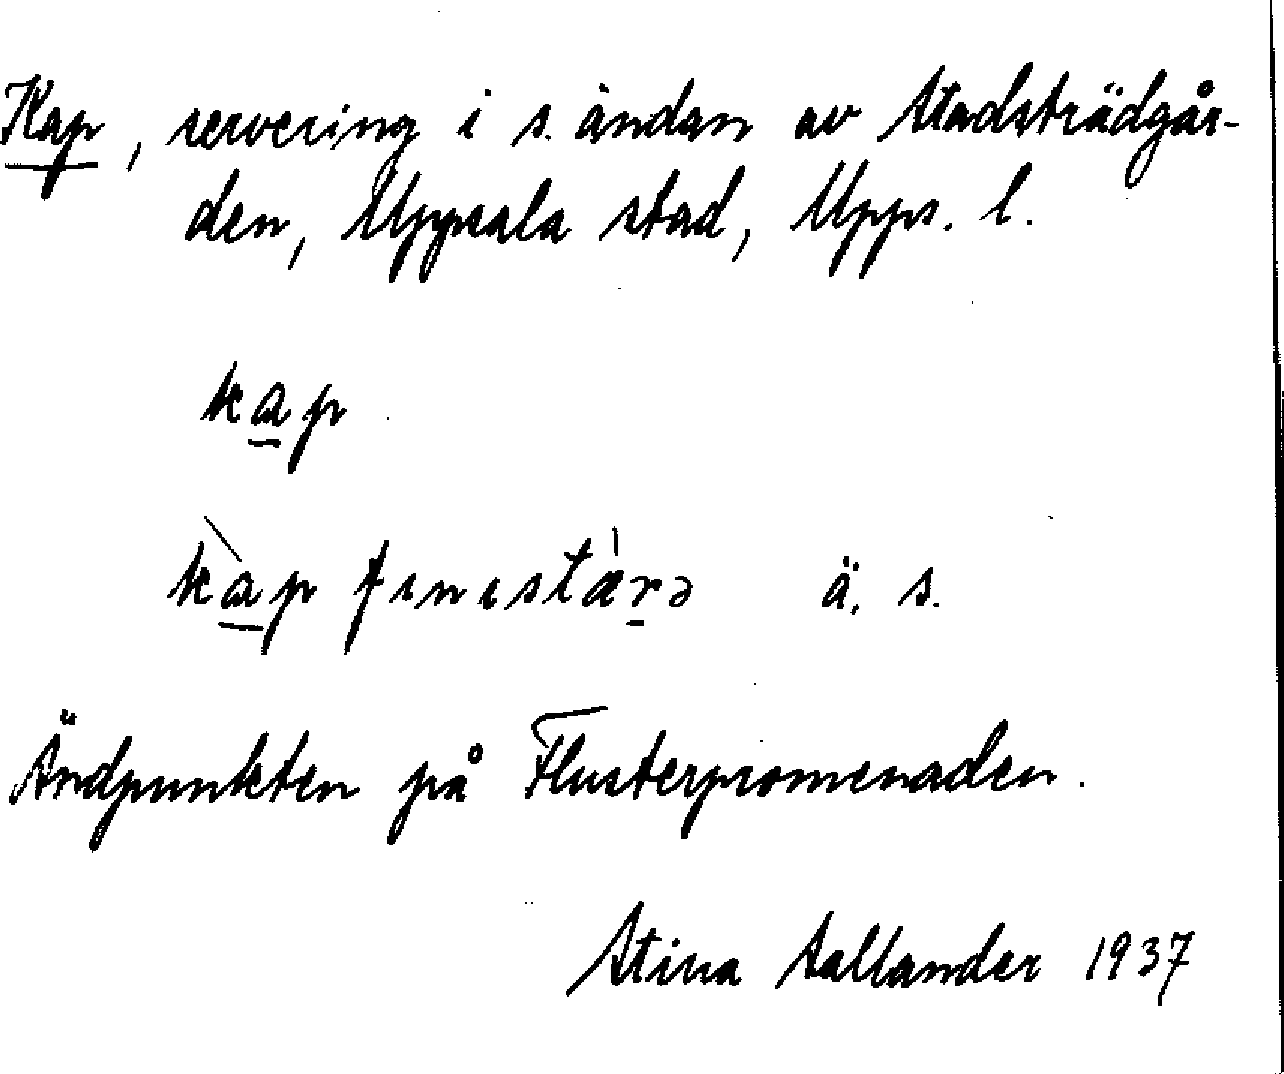 Kap, servering i s. ändan av Stadsträdgår-
den, Uppsala stad, Upps. l.
kap
kàp fınıstæ̀rə ä. s.
Ändpunkten på Flusterpromenaden.
Stina Aallander 1937